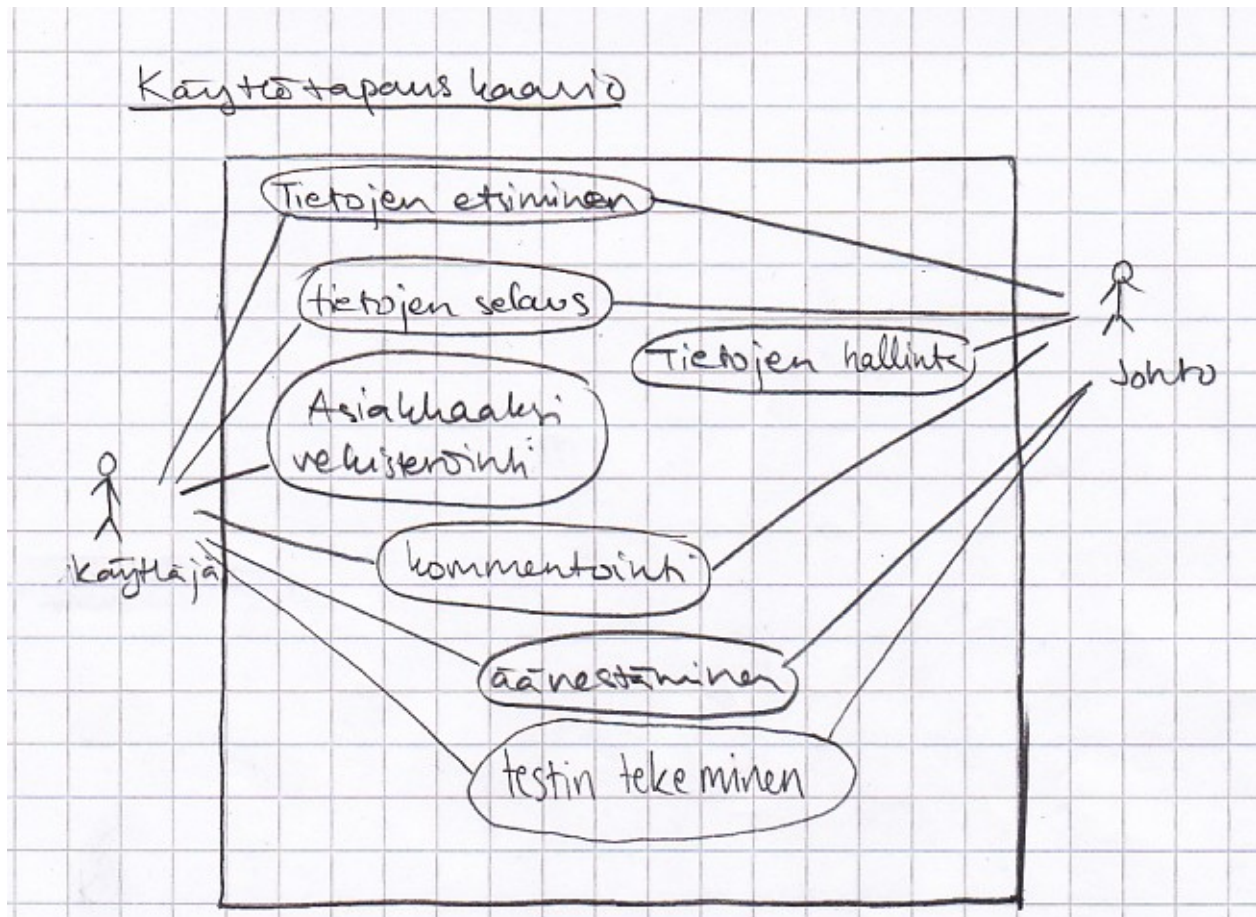 Käyttötapaus kaavio
Tietojen etsiminen
tietojen selaus
Tietojen hallinta
Johto
Asiakkaaksi
rekisteröinti
Käyttäjä
kommentointi
äänestäminen
testin tekeminen